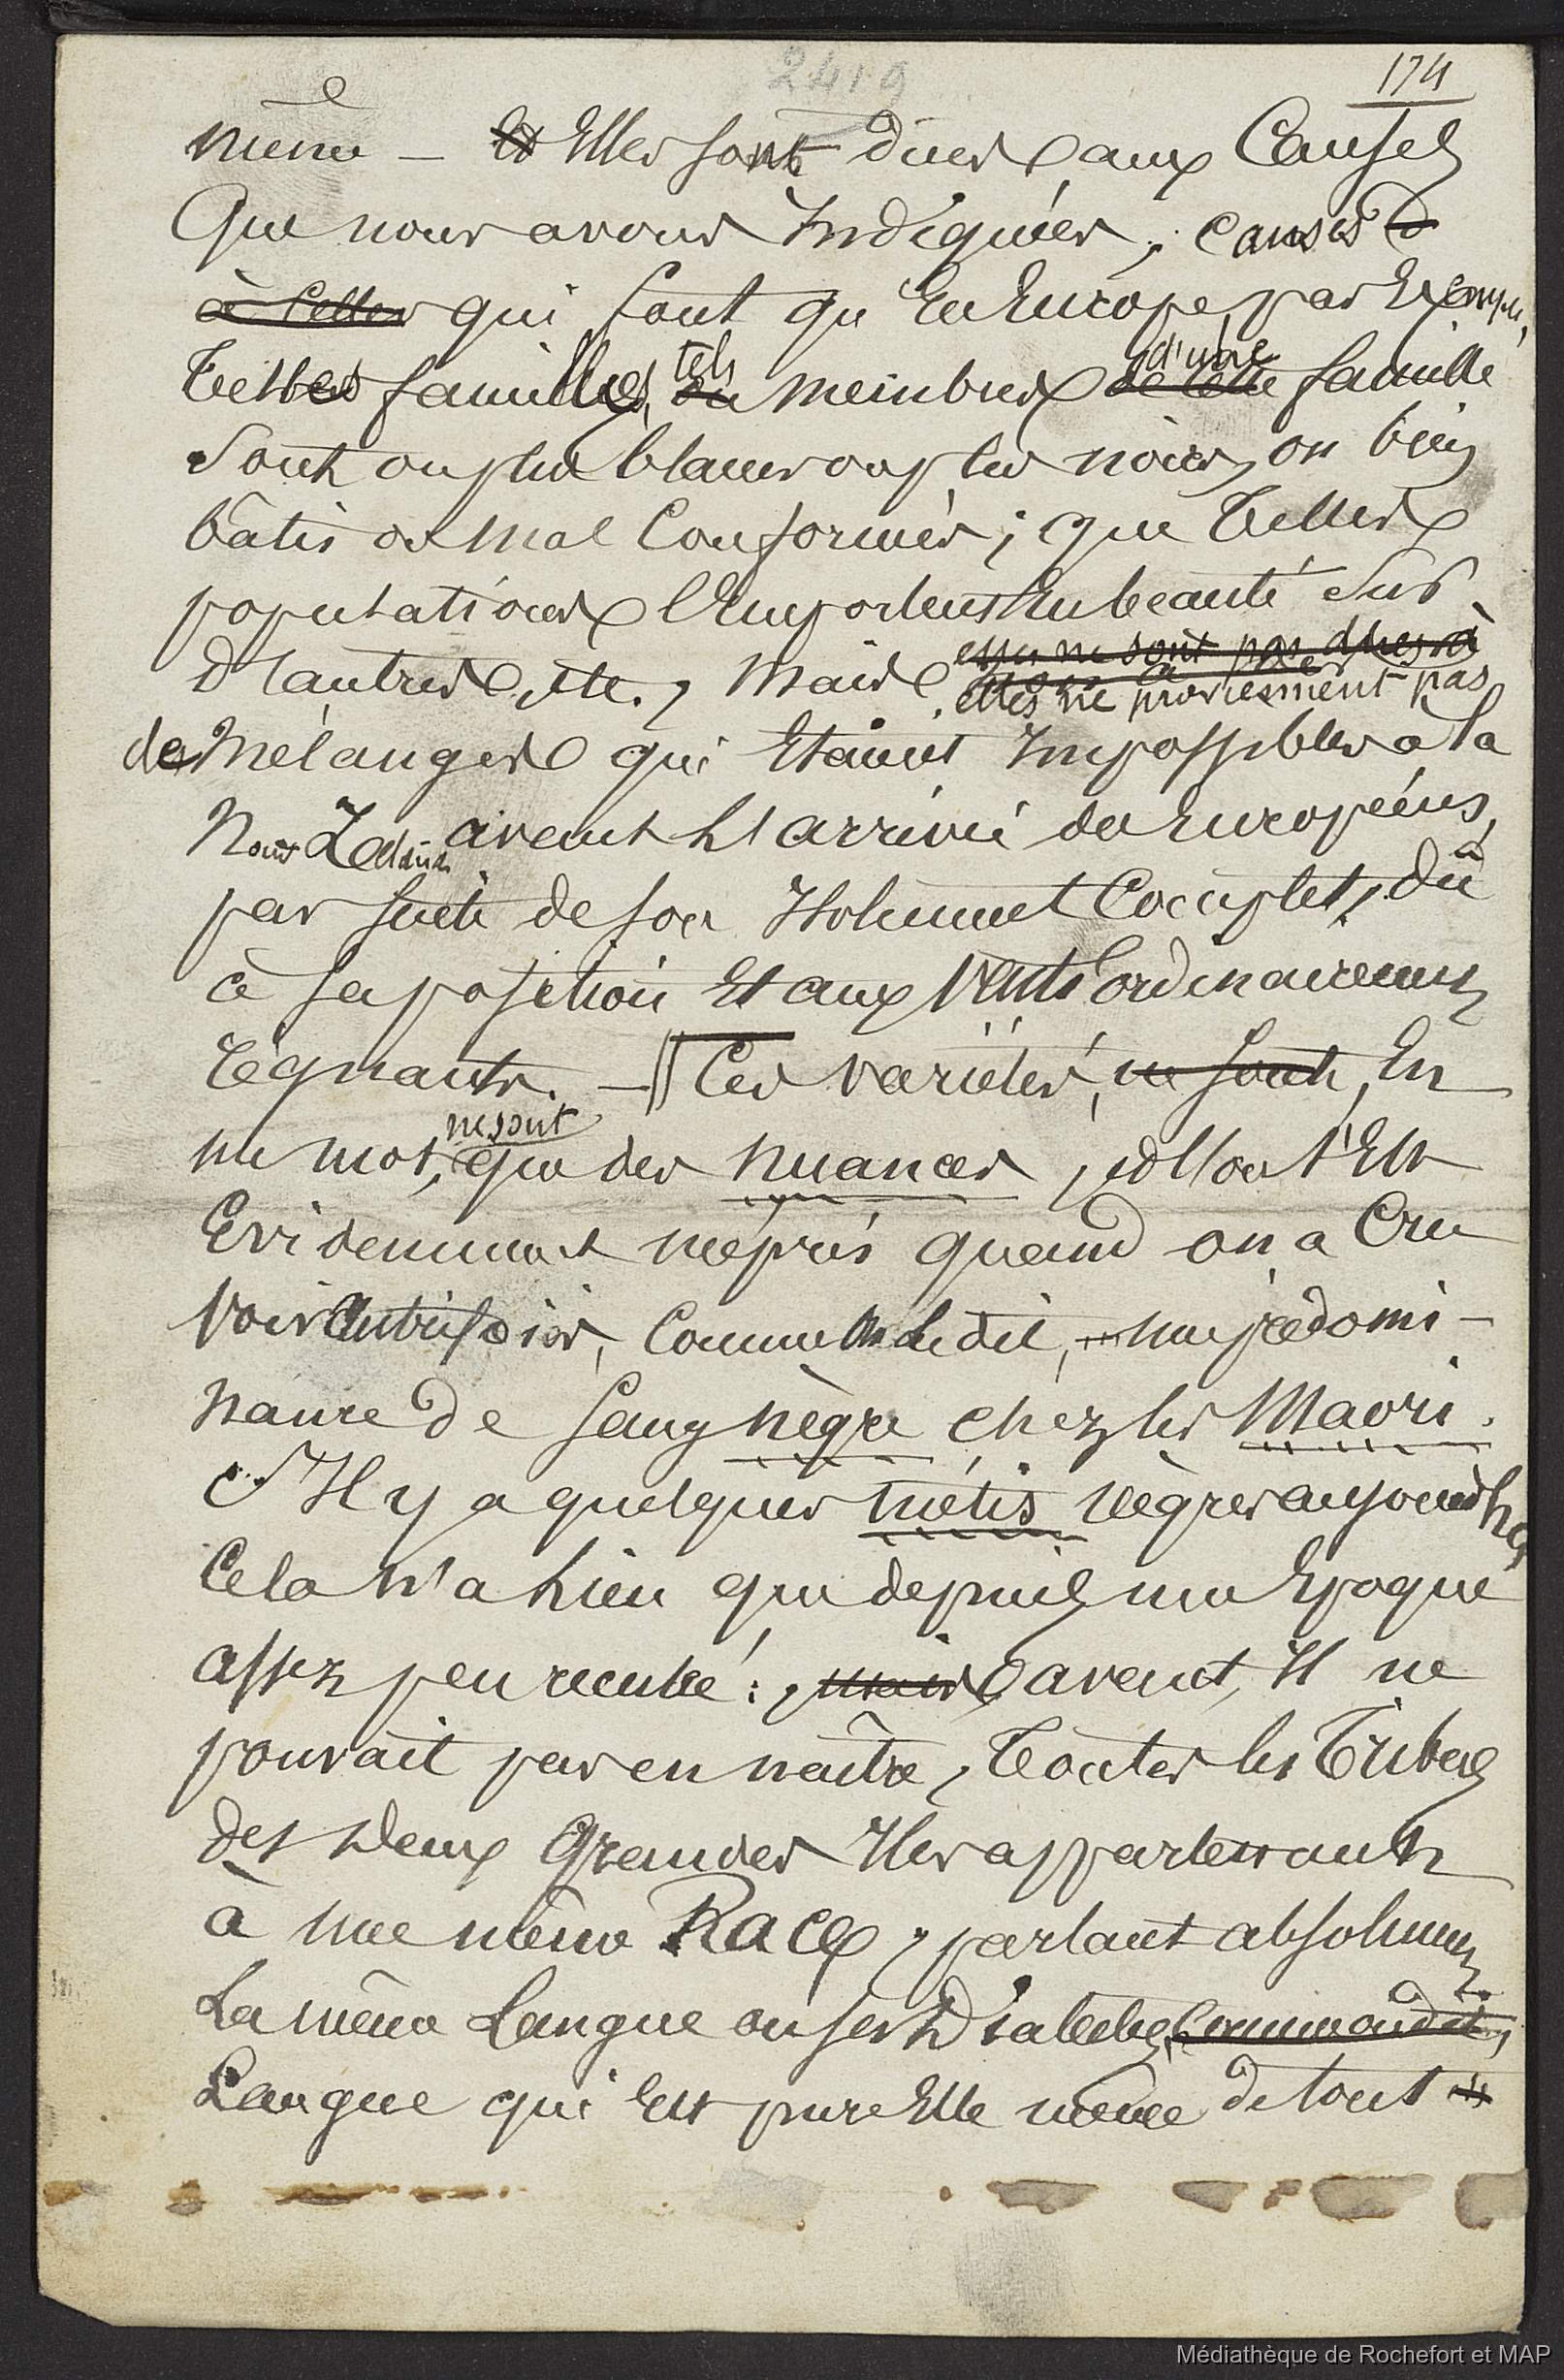 2419
174
même — Elles sont dues aux Causes
Que nous avons Indiquées, causes
à Celles qui font qu'En Europe, par Exemple,
Telles familles, tels membres d'une famille
Sont ou plus blancs ou plus noirs, ou bien
bâtis ou mal Conformés; que Telles
populations l'Emportent En beauté sur
D'autres, etc., Mais elles ne sont pas dues à
elles ne proviennent pas
de Mélanges qui Etaient Impossibles à la
Nouv Zélande avant l'arrivée des Européens,
par suite de son Isolement Complet, dû
à sa position Et aux Vents ordinairement
régnants. — Ces variétés, ne sont, En
un mot, ne sont que des nuances, et l'on s'Est
Evidemment mépris quand on a Cru
Voir, Comme on l'a dit, une prédomi-
nance de sang nègre chez les Maori.
S'Il y a quelques métis nègres aujourd'hui
Cela n'a lieu que depuis une Epoque
assez peu reculée: mais avant, Il ne
pouvait pas en naître, Toutes les Tribus
des Deux Grandes Iles appartenant
à une même Race, parlant absolument
La même Langue ou ses Dialectes,
Langue qui Est pure Elle même de tout
Médiathèque de Rochefort et MAP